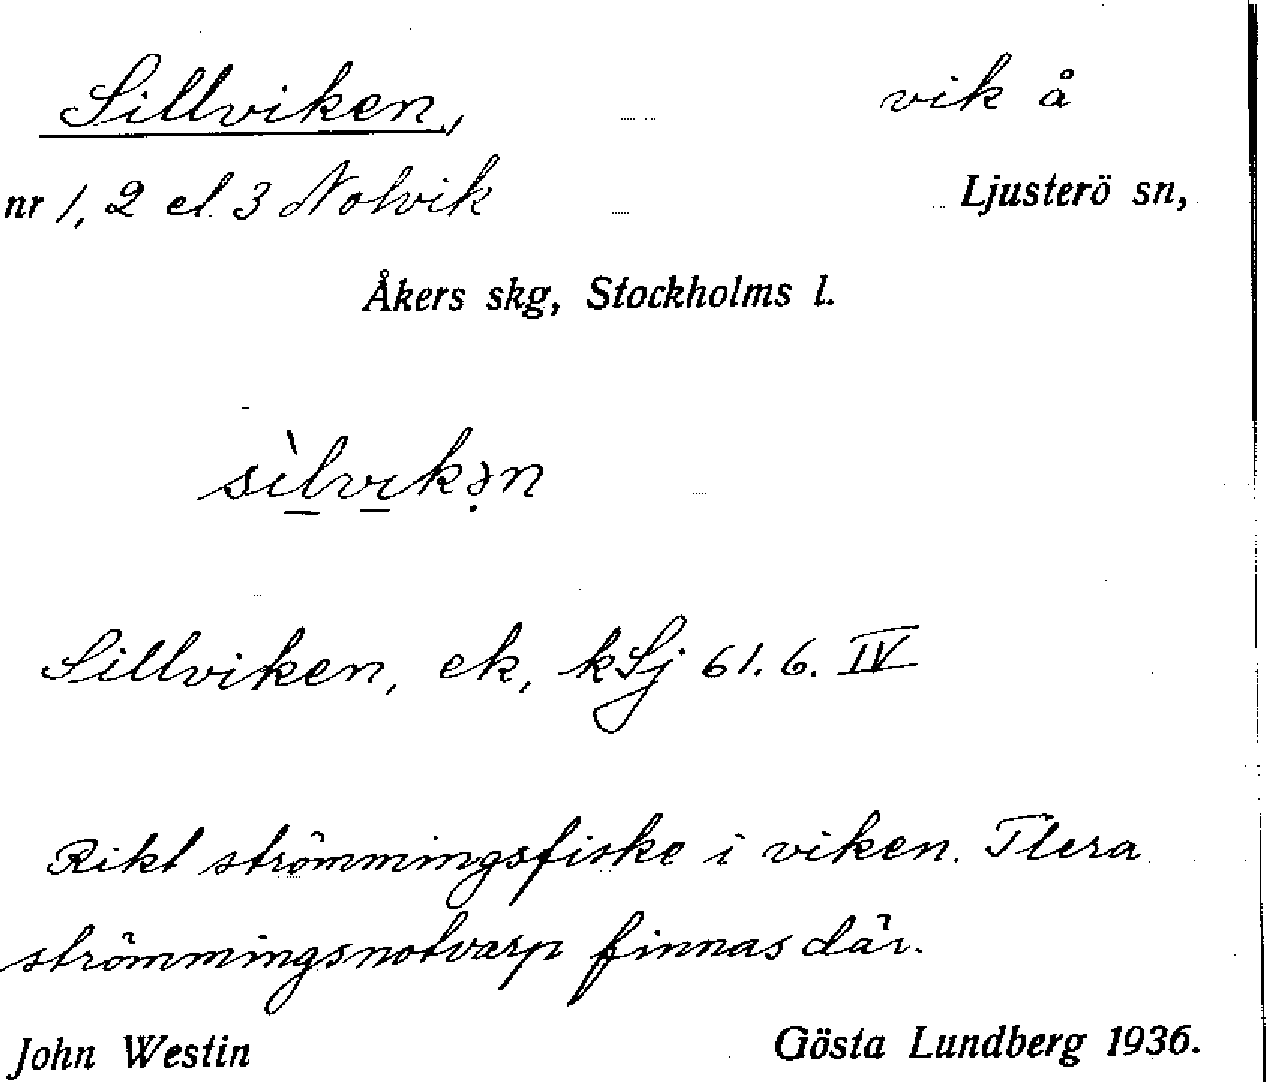 Sillviken, vik å
nr 1, 2 el. 3 Notvik Ljusterö sn,
Åkers skg, Stockholms l.
sìlvikən
Sillviken, ek, kSj 61. 6. IV
Rikt strömmingsfiske i viken. Flera
strömmingsnotvarp finnas där.
John Westin Gösta Lundberg 1936.